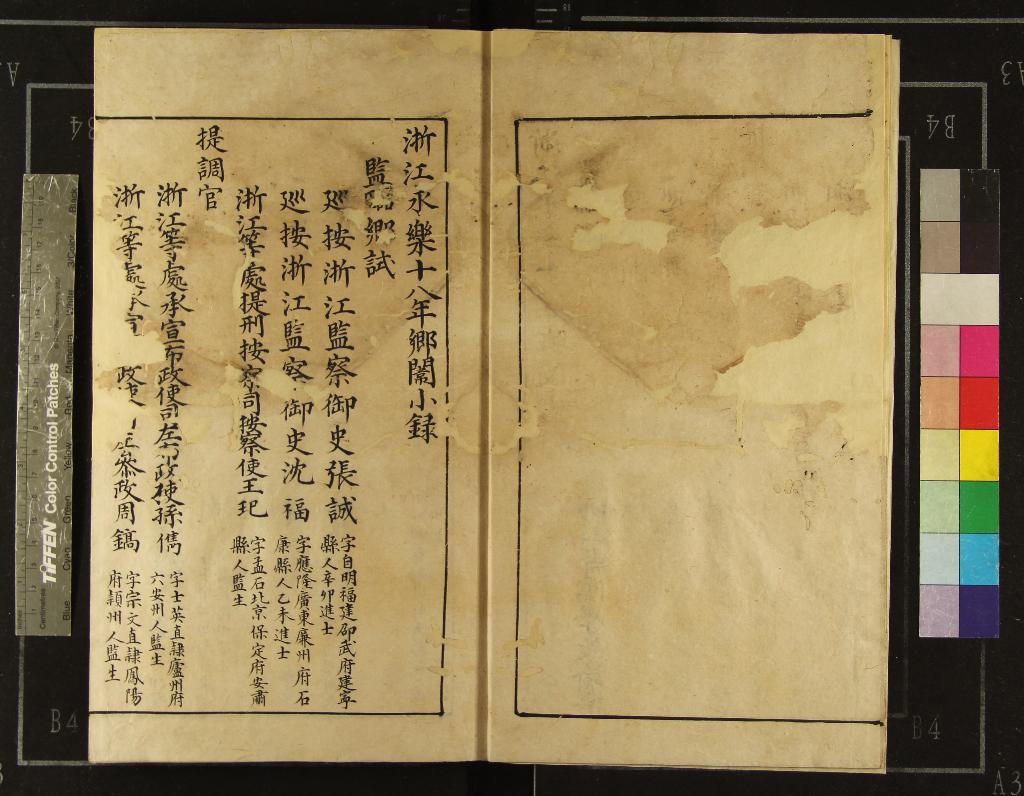 浙江永樂十八年鄉闈小録
監臨鄉試
廵按浙江監察御史張誠 字自明福建邵武府建寧縣人辛卯進士
廵按浙江監察御史沈福 字應隆廣東廉州府石康縣人乙未進士
浙江等處提刑按察司按察使王玘 字孟石北京保定府安肅縣人監生
提調官
浙江等處承宣布政使司左布政使孫儁 字士英直隸廬州府六安州人監生
浙江等處承宣 政使 左叅政周鎬 字宗文直隸鳳陽府潁州人監生
TIFFEN Color Control Patches
Blue Cyan Green Yellow Red Magenta White 3/Color Black
Inches
Centimetres
B4
B4
B4
B4
A3
A3